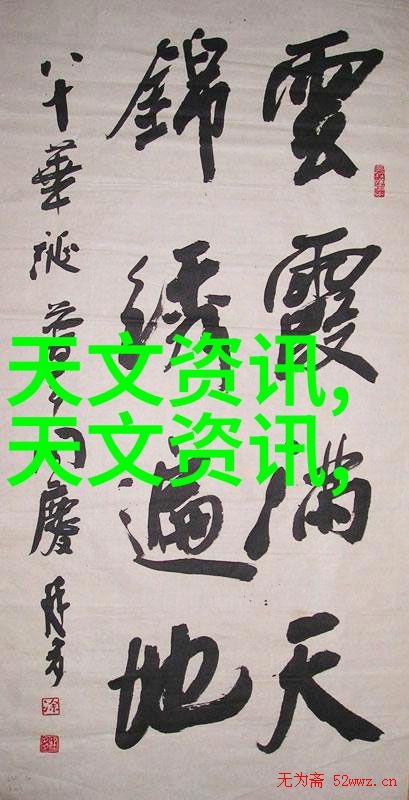 雲霞滿天
錦綉遍地
八十華誕 普天同慶
天文资讯,
天文资讯,
无为斋 52wwz.cn